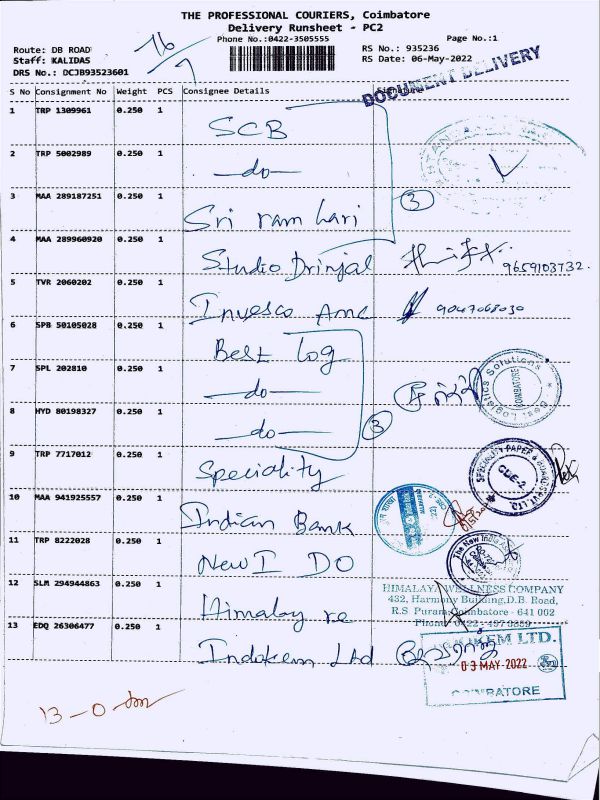 THE PROFESSIONAL COURIERS, Coimbatore
Delivery Runsheet - PC2
Phone No.:0422-3505555
Page No.:1
16/7
Route: DB ROAD
RS No.: 935236
Staff: KALIDAS
RS Date: 06-May-2022
DRS No.: DCJB93523601
DOCUMENT DELIVERY
S No Consignment No Weight PCS Consignee Details Signature
1 TRP 1309961 0.250 1 SCB
2 TRP 5002989 0.250 1 -do-
3 MAA 289187251 0.250 1 Sri ram hari
3
4 MAA 289960920 0.250 1 Studio Drinjal 9659103732.
5 TVR 2060202 0.250 1 Invesco Amc 9047068030
6 SPB 50105028 0.250 1 Best log
7 SPL 202810 0.250 1 -do-
8 HYD 80198327 0.250 1 -do-
3
Best Logistics Solutions
COIMBATORE
9 TRP 7717012 0.250 1 Speciality
SPECIALITY PAPER & BOARDS PVT. LTD.
CBE-2
10 MAA 941925557 0.250 1 Indian Bank
11 TRP 8222028 0.250 1 New I DO
The New India
12 SLM 294944863 0.250 1 Himalay re
HIMALAYA WELLNESS COMPANY
432, Harmony Building, D.B. Road,
R.S. Puram, Coimbatore - 641 002
Phone : 0422 - 4979889
13 EDQ 26306477 0.250 1 Indokem Ltd
INDOKEM LTD.
03 MAY 2022
COIMBATORE
13-0-